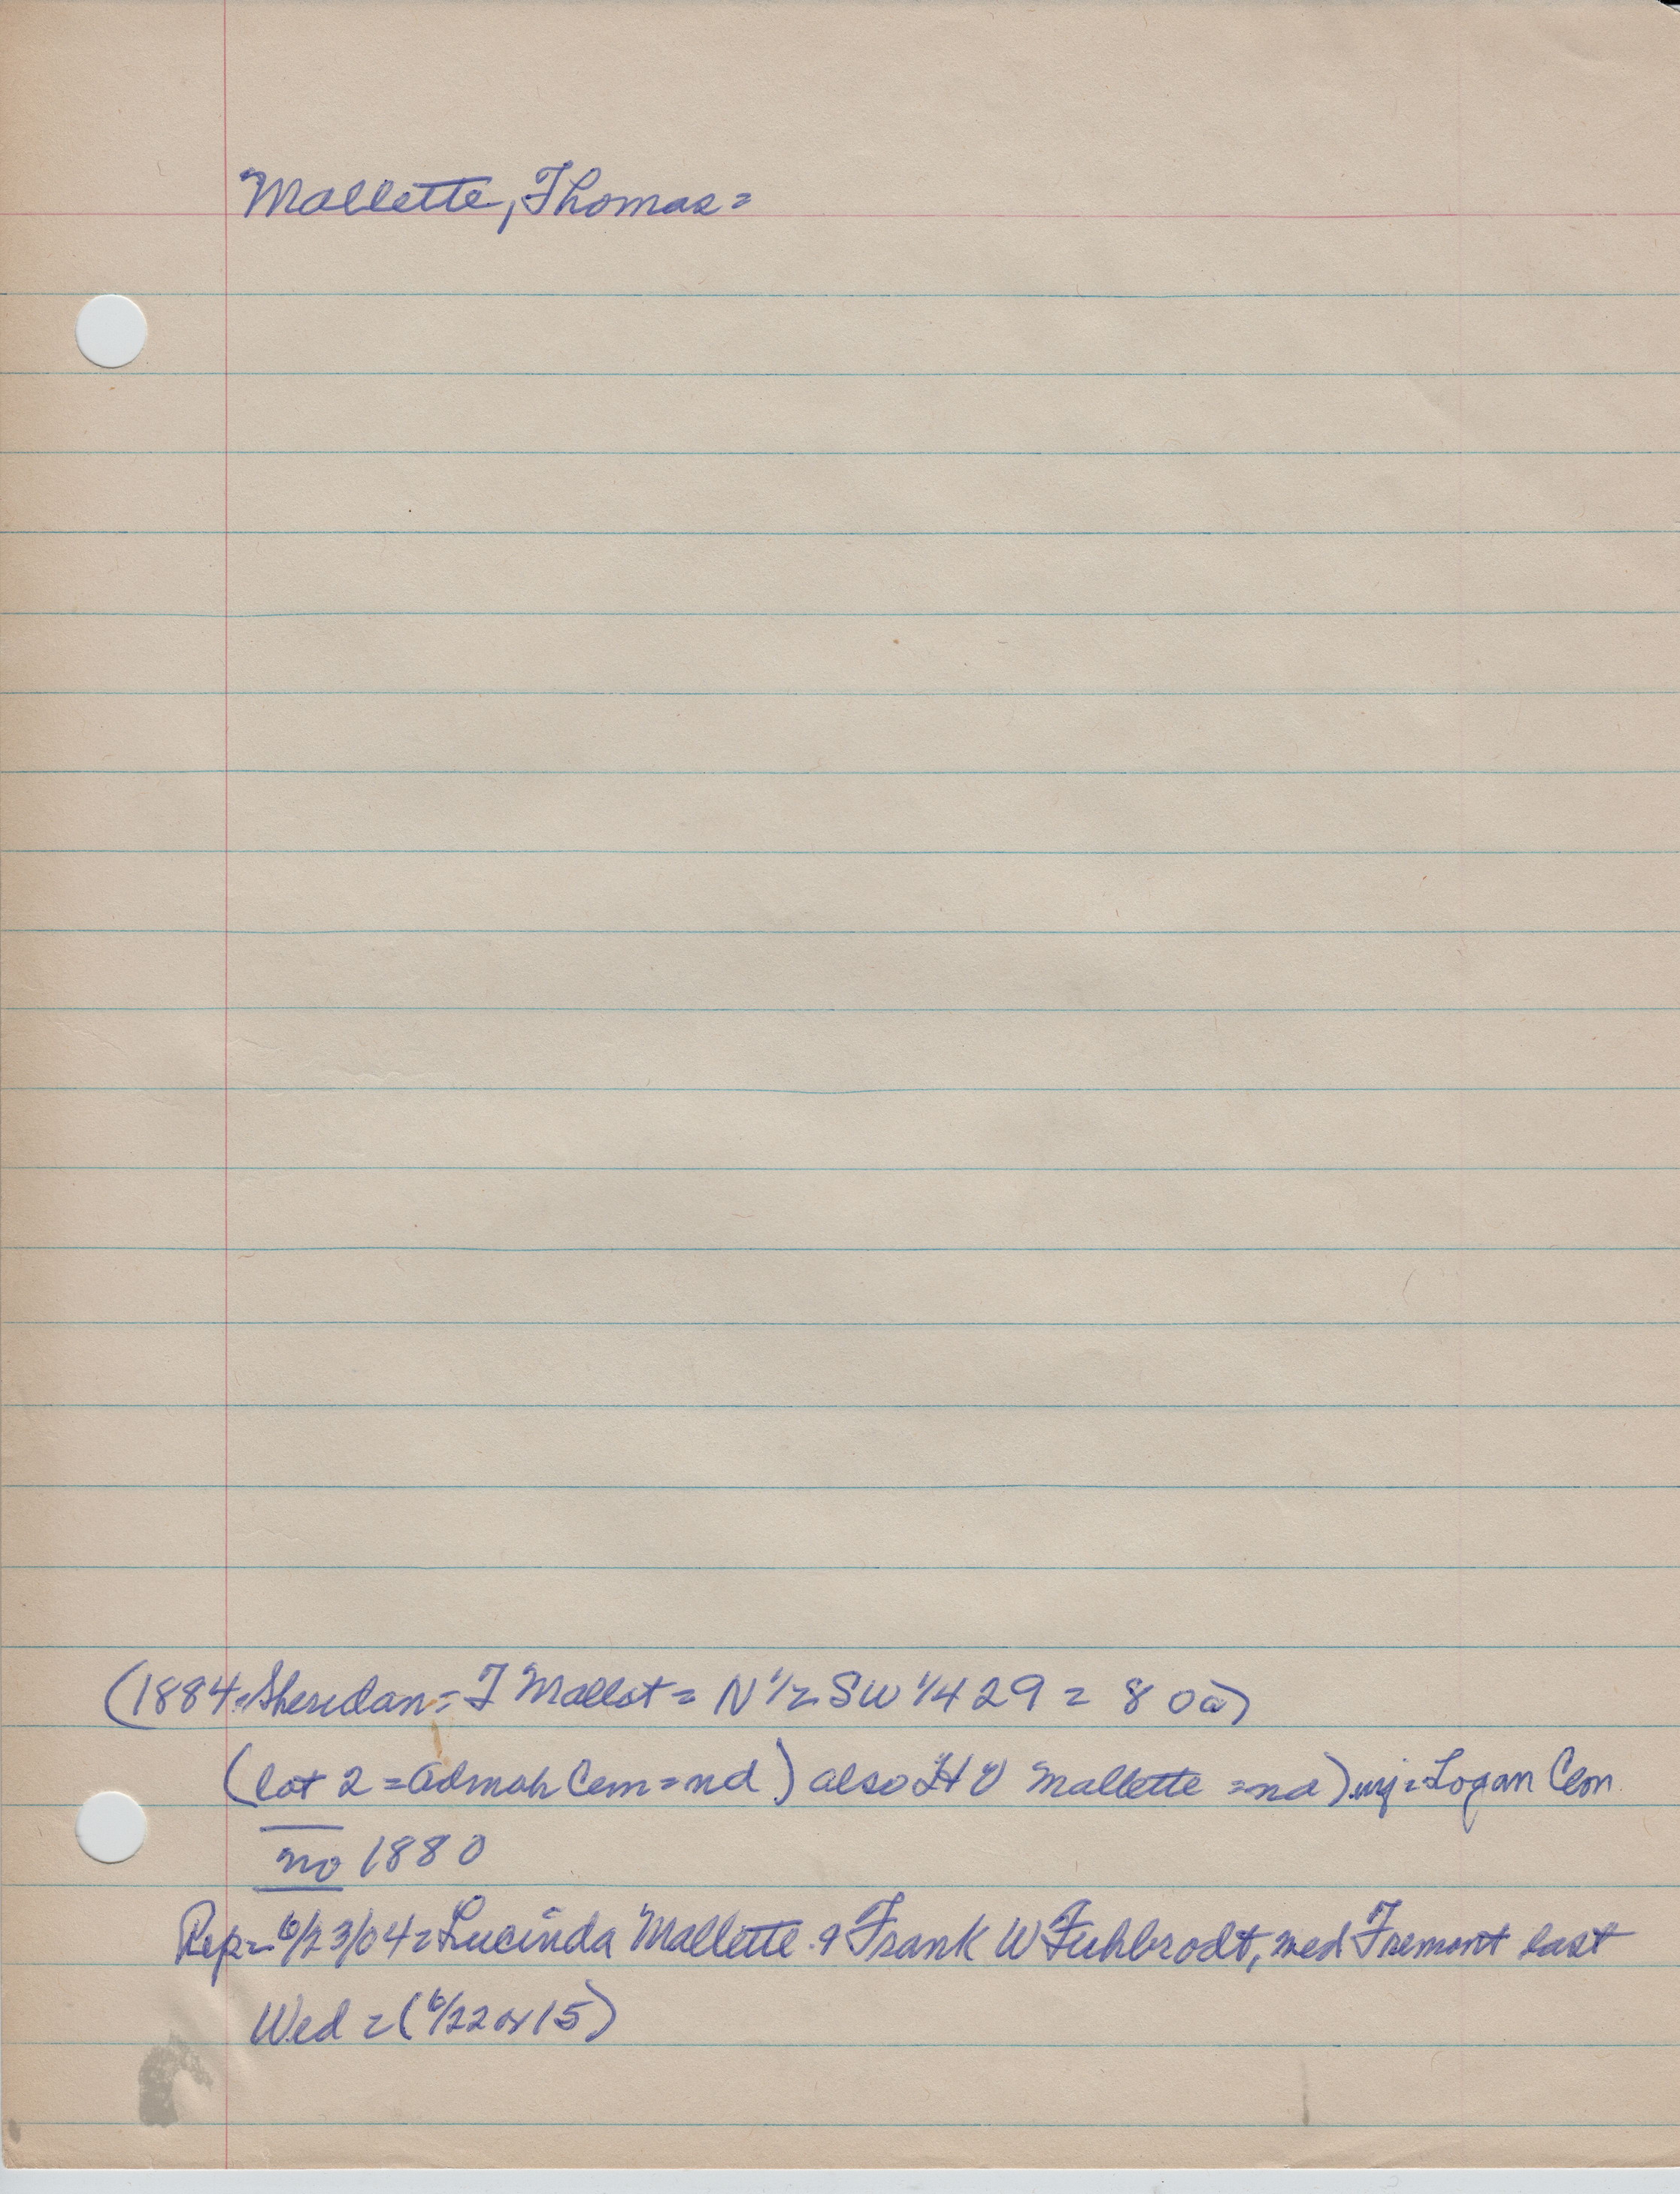 Mallette, Thomas=
(1884=Sheridan= T Mallot= N 1/2 SW 1/4 29 = 80a)
(lot 2=Admah Cem=nd) also H O Mallette =nd) = Logan Cem
no 1880
Rep= 6/23/04= Lucinda Mallette & Frank W Fuhbrodt, med Fremont last
Wed = (6/22 or 15)